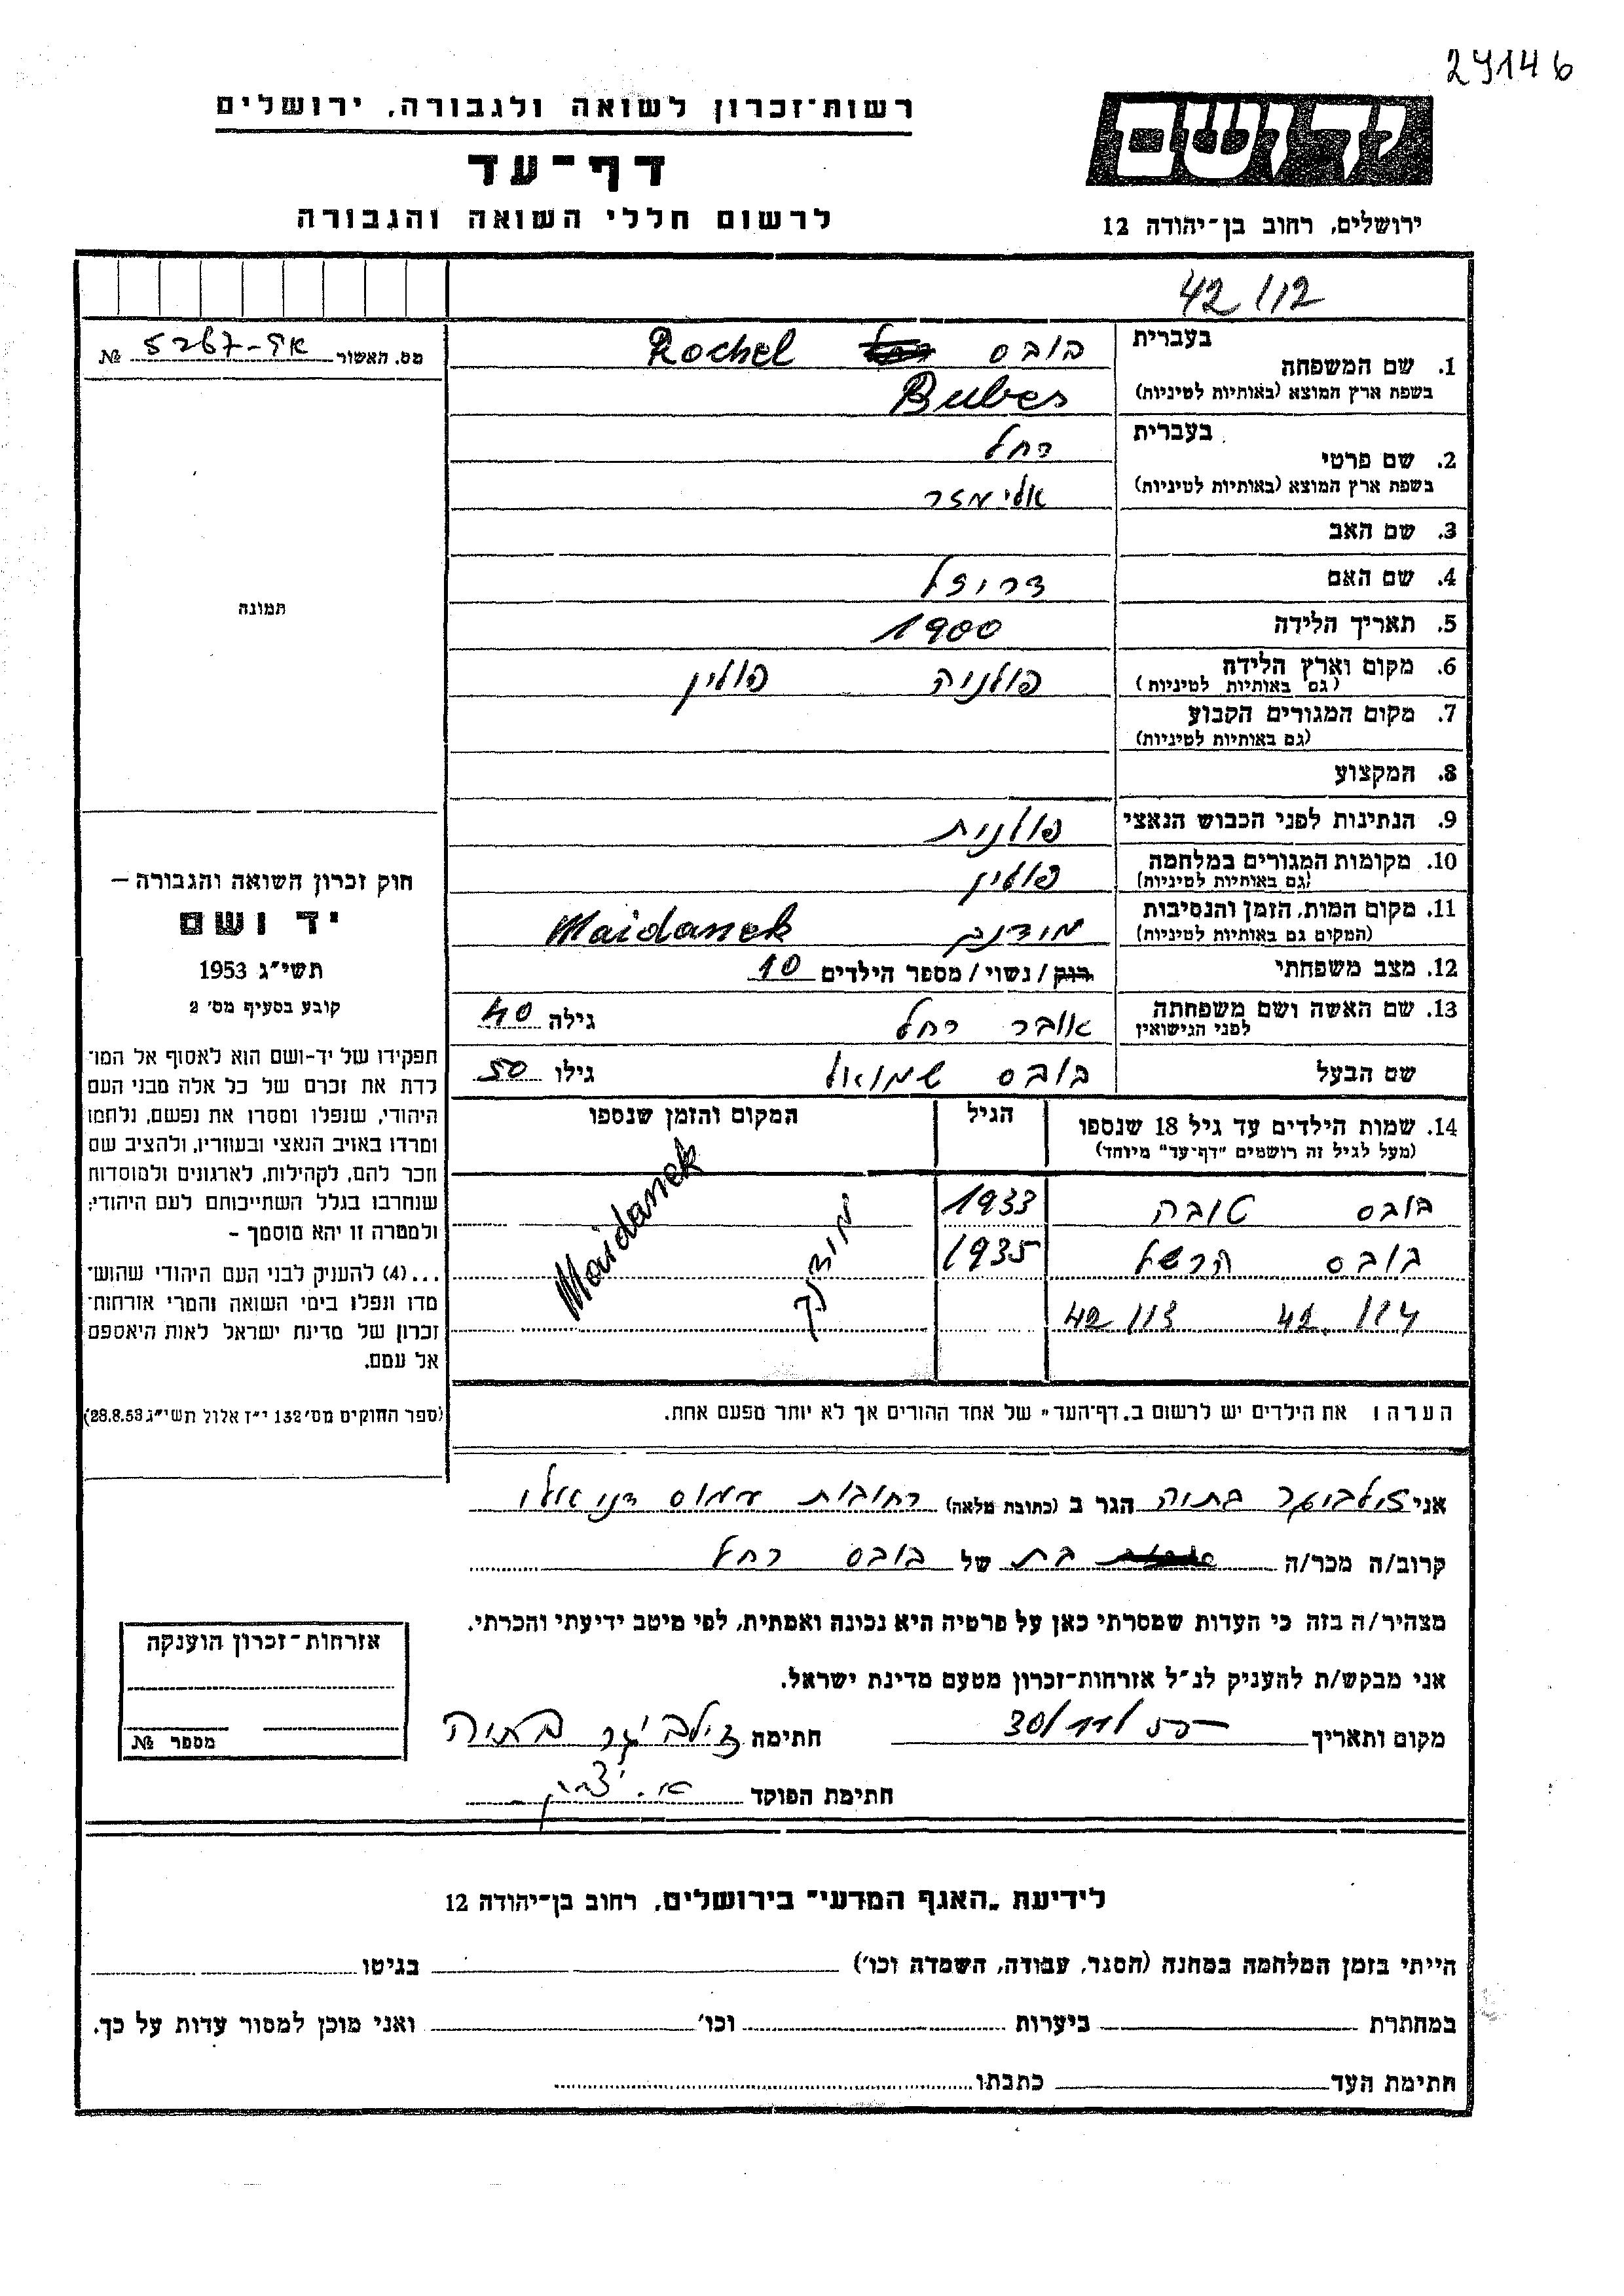 29146
רשות-זכרון לשואה ולגבורה, ירושלים
דף-עד
לרשום חללי השואה והגבורה
יד ושם
ירושלים, רחוב בן-יהודה 12
42/112
מס. האשור № 5267-אד
1. שם המשפחה בעברית בובס Rochel
בשפת ארץ המוצא (באותיות לטיניות) Bubes
2. שם פרטי בעברית רחל
בשפת ארץ המוצא (באותיות לטיניות) אלימזר
3. שם האב
4. שם האם דרויזל
5. תאריך הלידה 1900
6. מקום וארץ הלידה פולניה פולין
(גם באותיות לטיניות)
7. מקום המגורים הקבוע
(גם באותיות לטיניות)
8. המקצוע
9. הנתינות לפני הכבוש הנאצי פולנית
10. מקומות המגורים במלחמה פולין
(גם באותיות לטיניות)
11. מקום המות, הזמן והנסיבות Maidanek
(המקום גם באותיות לטיניות)
12. מצב משפחתי רווק / נשוי / מספר הילדים 10
13. שם האשה ושם משפחתה אובר רחל גילה 40
לפני הנישואין
שם הבעל בובס שמואל גילו 50
14. שמות הילדים עד גיל 18 שנספו הגיל המקום והזמן שנספו
(מעל לגיל זה רושמים "דף-עד" מיוחד)
בובס טובה 1933 Maidanek
בובס הרשל 1935
42/114 42/113
הערה: את הילדים יש לרשום ב„דף-העד" של אחד ההורים אך לא יותר מפעם אחת.
תמונה
חוק זכרון השואה והגבורה –
יד ושם
תשי"ג 1953
קובע בסעיף מס' 2
תפקידו של יד-ושם הוא לאסוף אל המו־
לדת את זכרם של כל אלה מבני העם
היהודי, שנפלו ומסרו את נפשם, נלחמו
ומרדו באויב הנאצי ובעוזריו, ולהציב שם
וזכר להם, לקהילות, לארגונים ולמוסדות
שנחרבו בגלל השתייכותם לעם היהודי;
ולמטרה זו יהא מוסמך –
...(4) להעניק לבני העם היהודי שהוש־
מדו ונפלו בימי השואה והמרי אזרחות־
זכרון של מדינת ישראל לאות היאספם
אל עמם.
(ספר החוקים מס' 132 י"ז אלול תשי"ג 28.8.53)
אני זילביגר בתיה הגר ב (כתובת מלאה) רחובות עמוס דניאלי
קרוב/ה מכר/ה בת של בובס רחל
מצהיר/ה בזה כי העדות שמסרתי כאן על פרטיה היא נכונה ואמתית, לפי מיטב ידיעתי והכרתי.
אני מבקש/ת להעניק לנ"ל אזרחות-זכרון מטעם מדינת ישראל.
מקום ותאריך 30/11/55 חתימה זילביגר בתיה
חתימת הפוקד
אזרחות-זכרון הוענקה
מספר №
לידיעת „האגף המדעי" בירושלים, רחוב בן-יהודה 12
הייתי בזמן המלחמה במחנה (הסגר, עבודה, השמדה וכו') בגיטו
במחתרת ביערות וכו' ואני מוכן למסור עדות על כך.
חתימת העד כתבתו